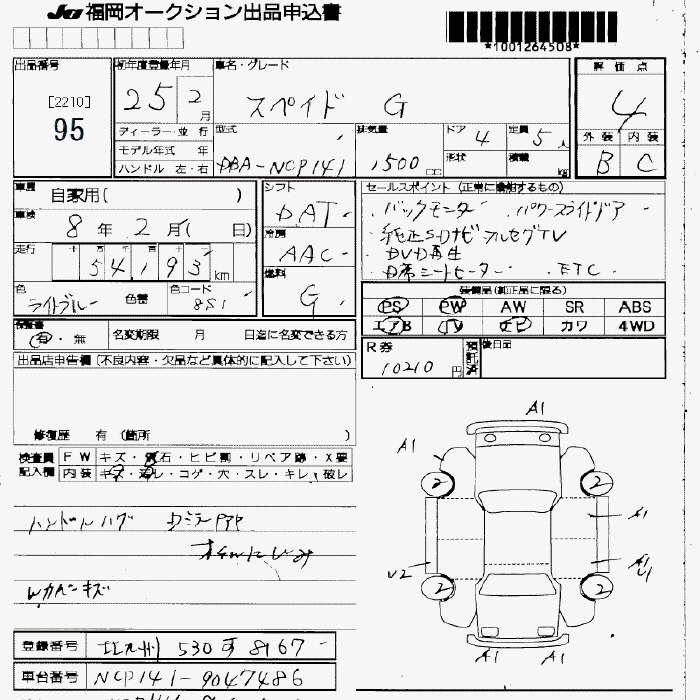 JU 福岡オークション出品申込書
*1001264508*
出品番号 [2210] 95
初年度登録年月 25 2 月
車名・グレード スペイド G
評価点 4
外装 B 内装 C
ディーラー・並行
モデル年式 年
ハンドル 左・右
型式 DBA-NCP141
排気量 1500 cc
ドア 4 定員 5 人
形状 積載 kg
車歴 自家用( )
車検 8 年 2 月( 日)
走行 54,193 km
色 ライトブルー 色替 色コード 8S1
シフト DAT
冷房 AAC
燃料 G
セールスポイント (正常に機能するもの)
・バックモニター ・パワースライドドア
・純正SDナビ フルセグTV
・DVD再生
・D席シートヒーター ・ETC
装備品(純正品に限る)
PS PW AW SR ABS
エアB TV ナビ カワ 4WD
検査書 有・無 名変期限 月 日迄に名変できる方
R券 10210 円 預託済 後日品
出品店申告欄(不良内容・欠品など具体的に記入して下さい)
修復歴 有 (箇所 )
検査員記入欄
FW キズ・飛石・ヒビ割・リペア跡・X要
内装 キズ・汚レ・コゲ・穴・スレ・キレ・破レ
ハンドルハゲ
Wカバーキズ
A1
A1
2 2
A1
U2 A1
U1
2 2
A1 A1
登録番号 北九州 530 す 8167
車台番号 NCP141-9047486